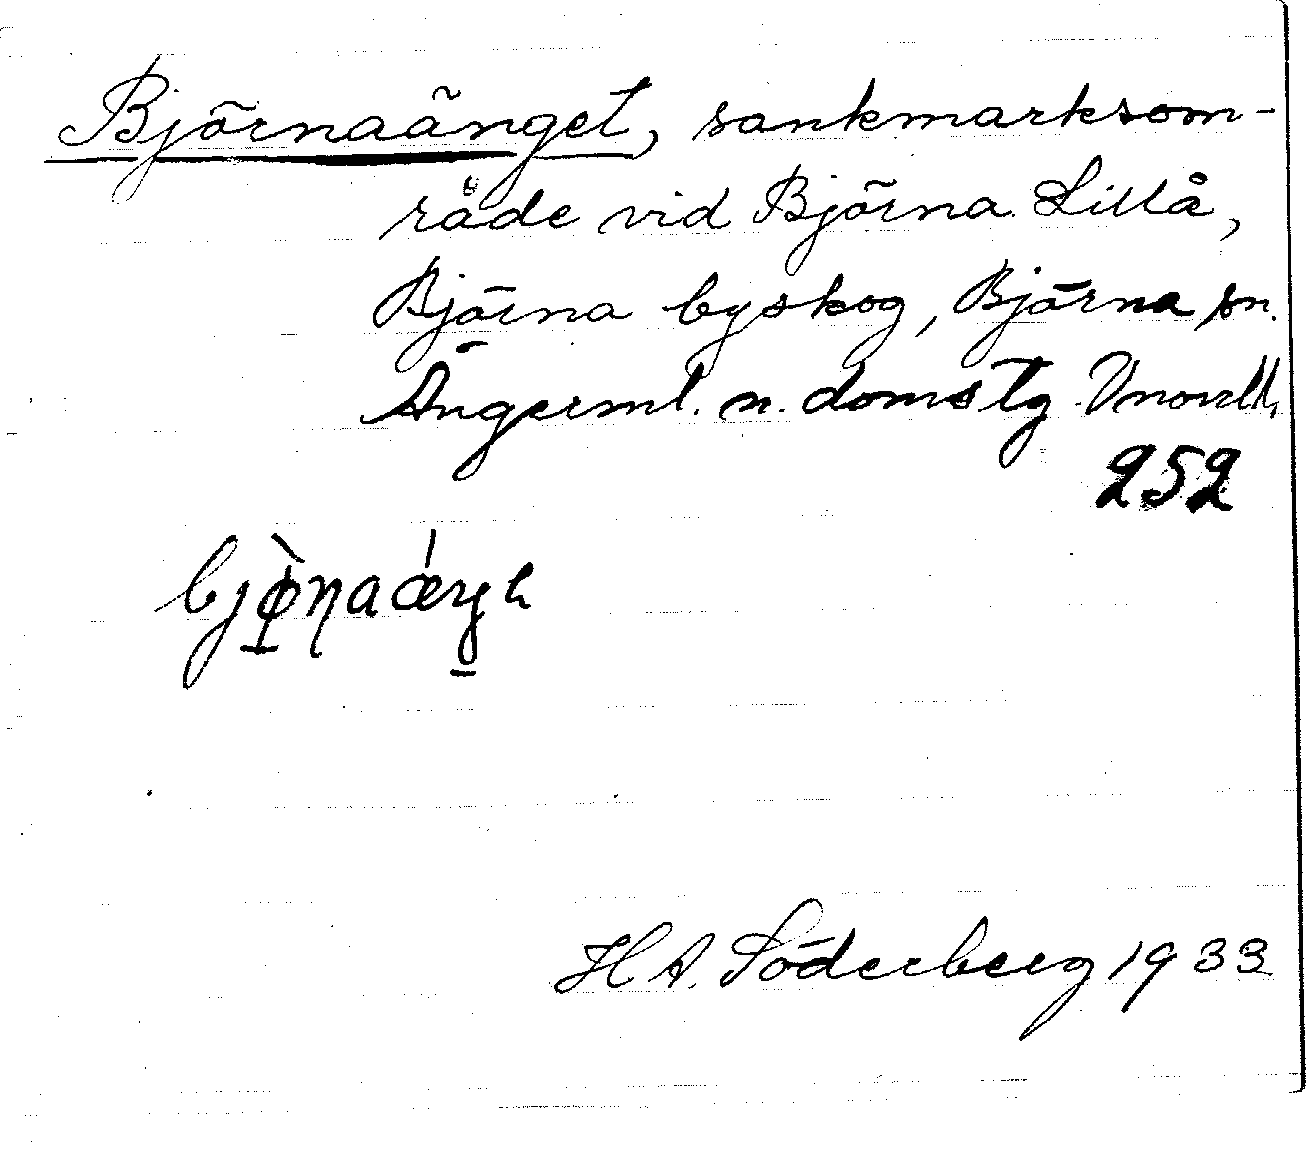 Björnaänget, sankmarksom-
råde vid Björna Lillå,
Björna byskog, Björna sn.
Ångerml. n. domstg
252
H A. Söderberg 1933